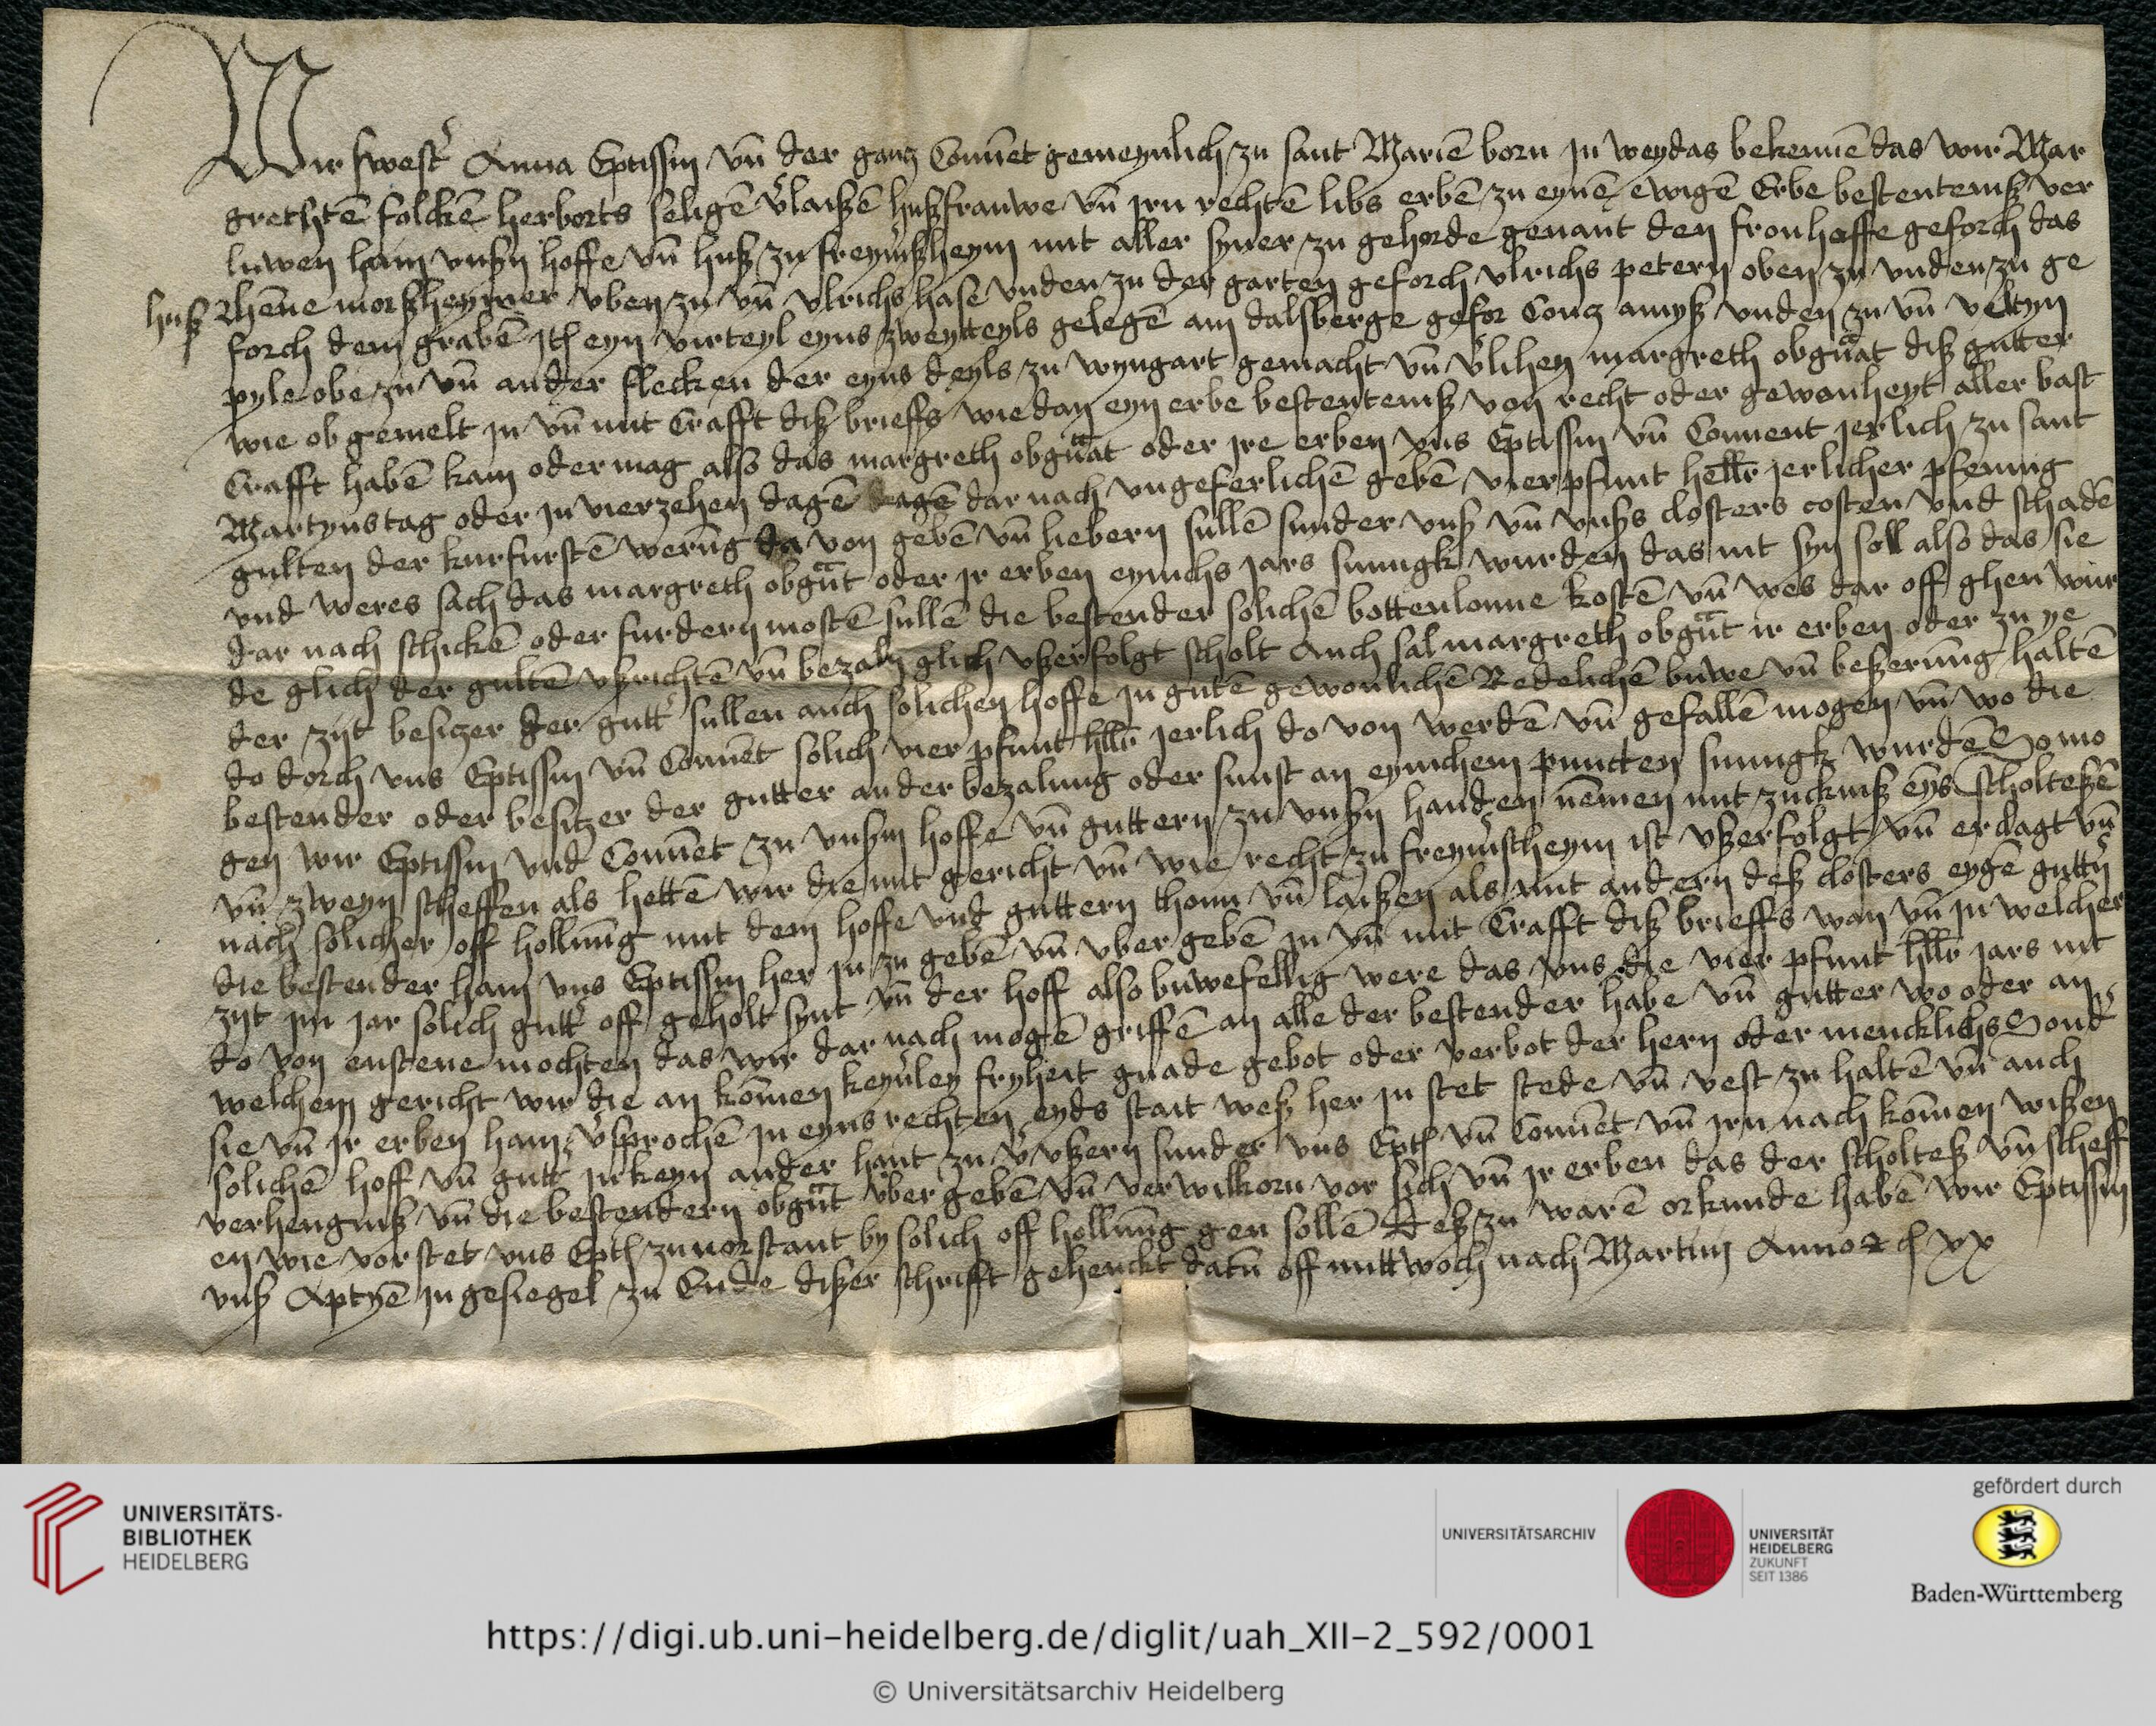 Wir swest' Anna Eptissin vn̄ der gantz Conuēt gemeynlich zu sant Mariē born in weydas bekennē das wir Mar
grethtē folckē herborts seligē v'laißē hußfrauwe vn̄ irn rechtē libs erbē zu eynē ewigē Erbe bestentenuß ver
luwen hain vnßn hoffe vn̄ huß zu freyn̄ßheym mit aller syner zu gehorde genant den fronhoffe geforch das
huß Rhēne morßheymer oben zu vn̄ vlrichs hase vnden zu der garten geforch vlrichs petern oben zu vnden zu ge
forch dem grabē Itē eyn virteyl eyns zweytteyls gelegē am dalsberge gefor Contz amyß vnden zu vn̄ veltyn
pyle obē zu vn̄ ander flecken der eyns deyls zu wyngart gemacht vn̄ v'lihen margreth obgn̄at diß gutter
wie ob gemelt in vn̄ mit Crafft diß brieffs wie dan eyn erbe bestentenuß von recht oder gewonheyt aller bast
Crafft habē kan oder mag also das margreth obgn̄at oder ire erben vns Eptissin vn̄ Conuent jerlich zu sant
Martynstag oder in vierzehen dagē dagē dar nach vngeferlichē gebē vier pfunt hellr jerlicher pfennig
gulten der kurfurstē werūg da von gebē vn̄ liebern sullē sunder vnß vn̄ vnßs closters costen vnd schadē
vnd weres sach das margreth obgn̄t oder ir erben eynichs jars sumigk wurden das nit syn soll also das sie
dar nach schickē oder furdern mostē sullē die bestender solichē bottenlonne kostē vn̄ wes dar off ghen wur
de glich der gultē vßrichtē vn̄ bezaln glich vßerfolgt scholt Auch sal margreth obgn̄t ir erben oder zu ye
der zijt besitzer der gutt' sullen auch solichen hoffe in gutē gewonlichē Redelichē buwe vn̄ beßerūng haltē
do dorch vns Eptissin vn̄ Conuēt solich vier pfunt hllr jerlich do von werdē vn̄ gefallē mogen vn̄ wo die
bestender oder besitzer der gutter an der bezalung oder sunst an eynichem puncten sumigk wurdē So mo
gen wir Eptissin vnd Conuēt zu vnßm hoffe vn̄ guttern zu vnßn handen nemen mit zucknuß eȳs scholteßē
vn̄ zweyn scheffen als hettē wir die mit gericht vn̄ wie recht zu freym̄scheym ist vßerfolgt vn̄ erclagt vn̄
nach solicher off hollūng mit dem hoffe vnd guttern thonn vn̄ laißen als mit andern deß closters eygē guttn̄
die bestender ham vns Eptissin her in zu gebē vn̄ vber gebē in vn̄ mit Crafft diß brieffs wan vn̄ in welcher
zijt im jar solich gutt' off geholt synt vn̄ der hoff also buwefellig were das vns die vier pfunt hllr jars nit
do von enstene mochten das wir dar nach mogē griffē an alle der bestender habe vn̄ gutter wo oder an
welchem gericht wir die an komen keyn'ley fryheit gnade gebot oder verbot der hern oder mencklichs Sond'
sie vn̄ ir erben ham v'sprochē in eyns rechten eyds stait weß her in stet stede vn̄ vest zu haltē vn̄ auch
solichē hoff vn̄ gutt' in keyn ander hant zu v'vßern sunder vns Epti vn̄ Conuēt vn̄ irn nach komen wißen
verhengnuß vn̄ die bestendern obgn̄t vber gebē vn̄ verwilkorn vor sich vn̄ ir erben das der scholteß vn̄ scheff
en wie vor stet vns Epti zu uor stant by solich off hollūng gen sollē Deß zu warē orkunde habē wir Eptissin
vnß Aptyē in gesiegel zu Ende dißer schrifft gehenckt datū off mittwoch nach Martini Anno xx
UNIVERSITÄTS-
BIBLIOTHEK
HEIDELBERG
UNIVERSITÄTSARCHIV
UNIVERSITÄT
HEIDELBERG
ZUKUNFT
SEIT 1386
gefördert durch
Baden-Württemberg
https://digi.ub.uni-heidelberg.de/diglit/uah_XII-2_592/0001
© Universitätsarchiv Heidelberg